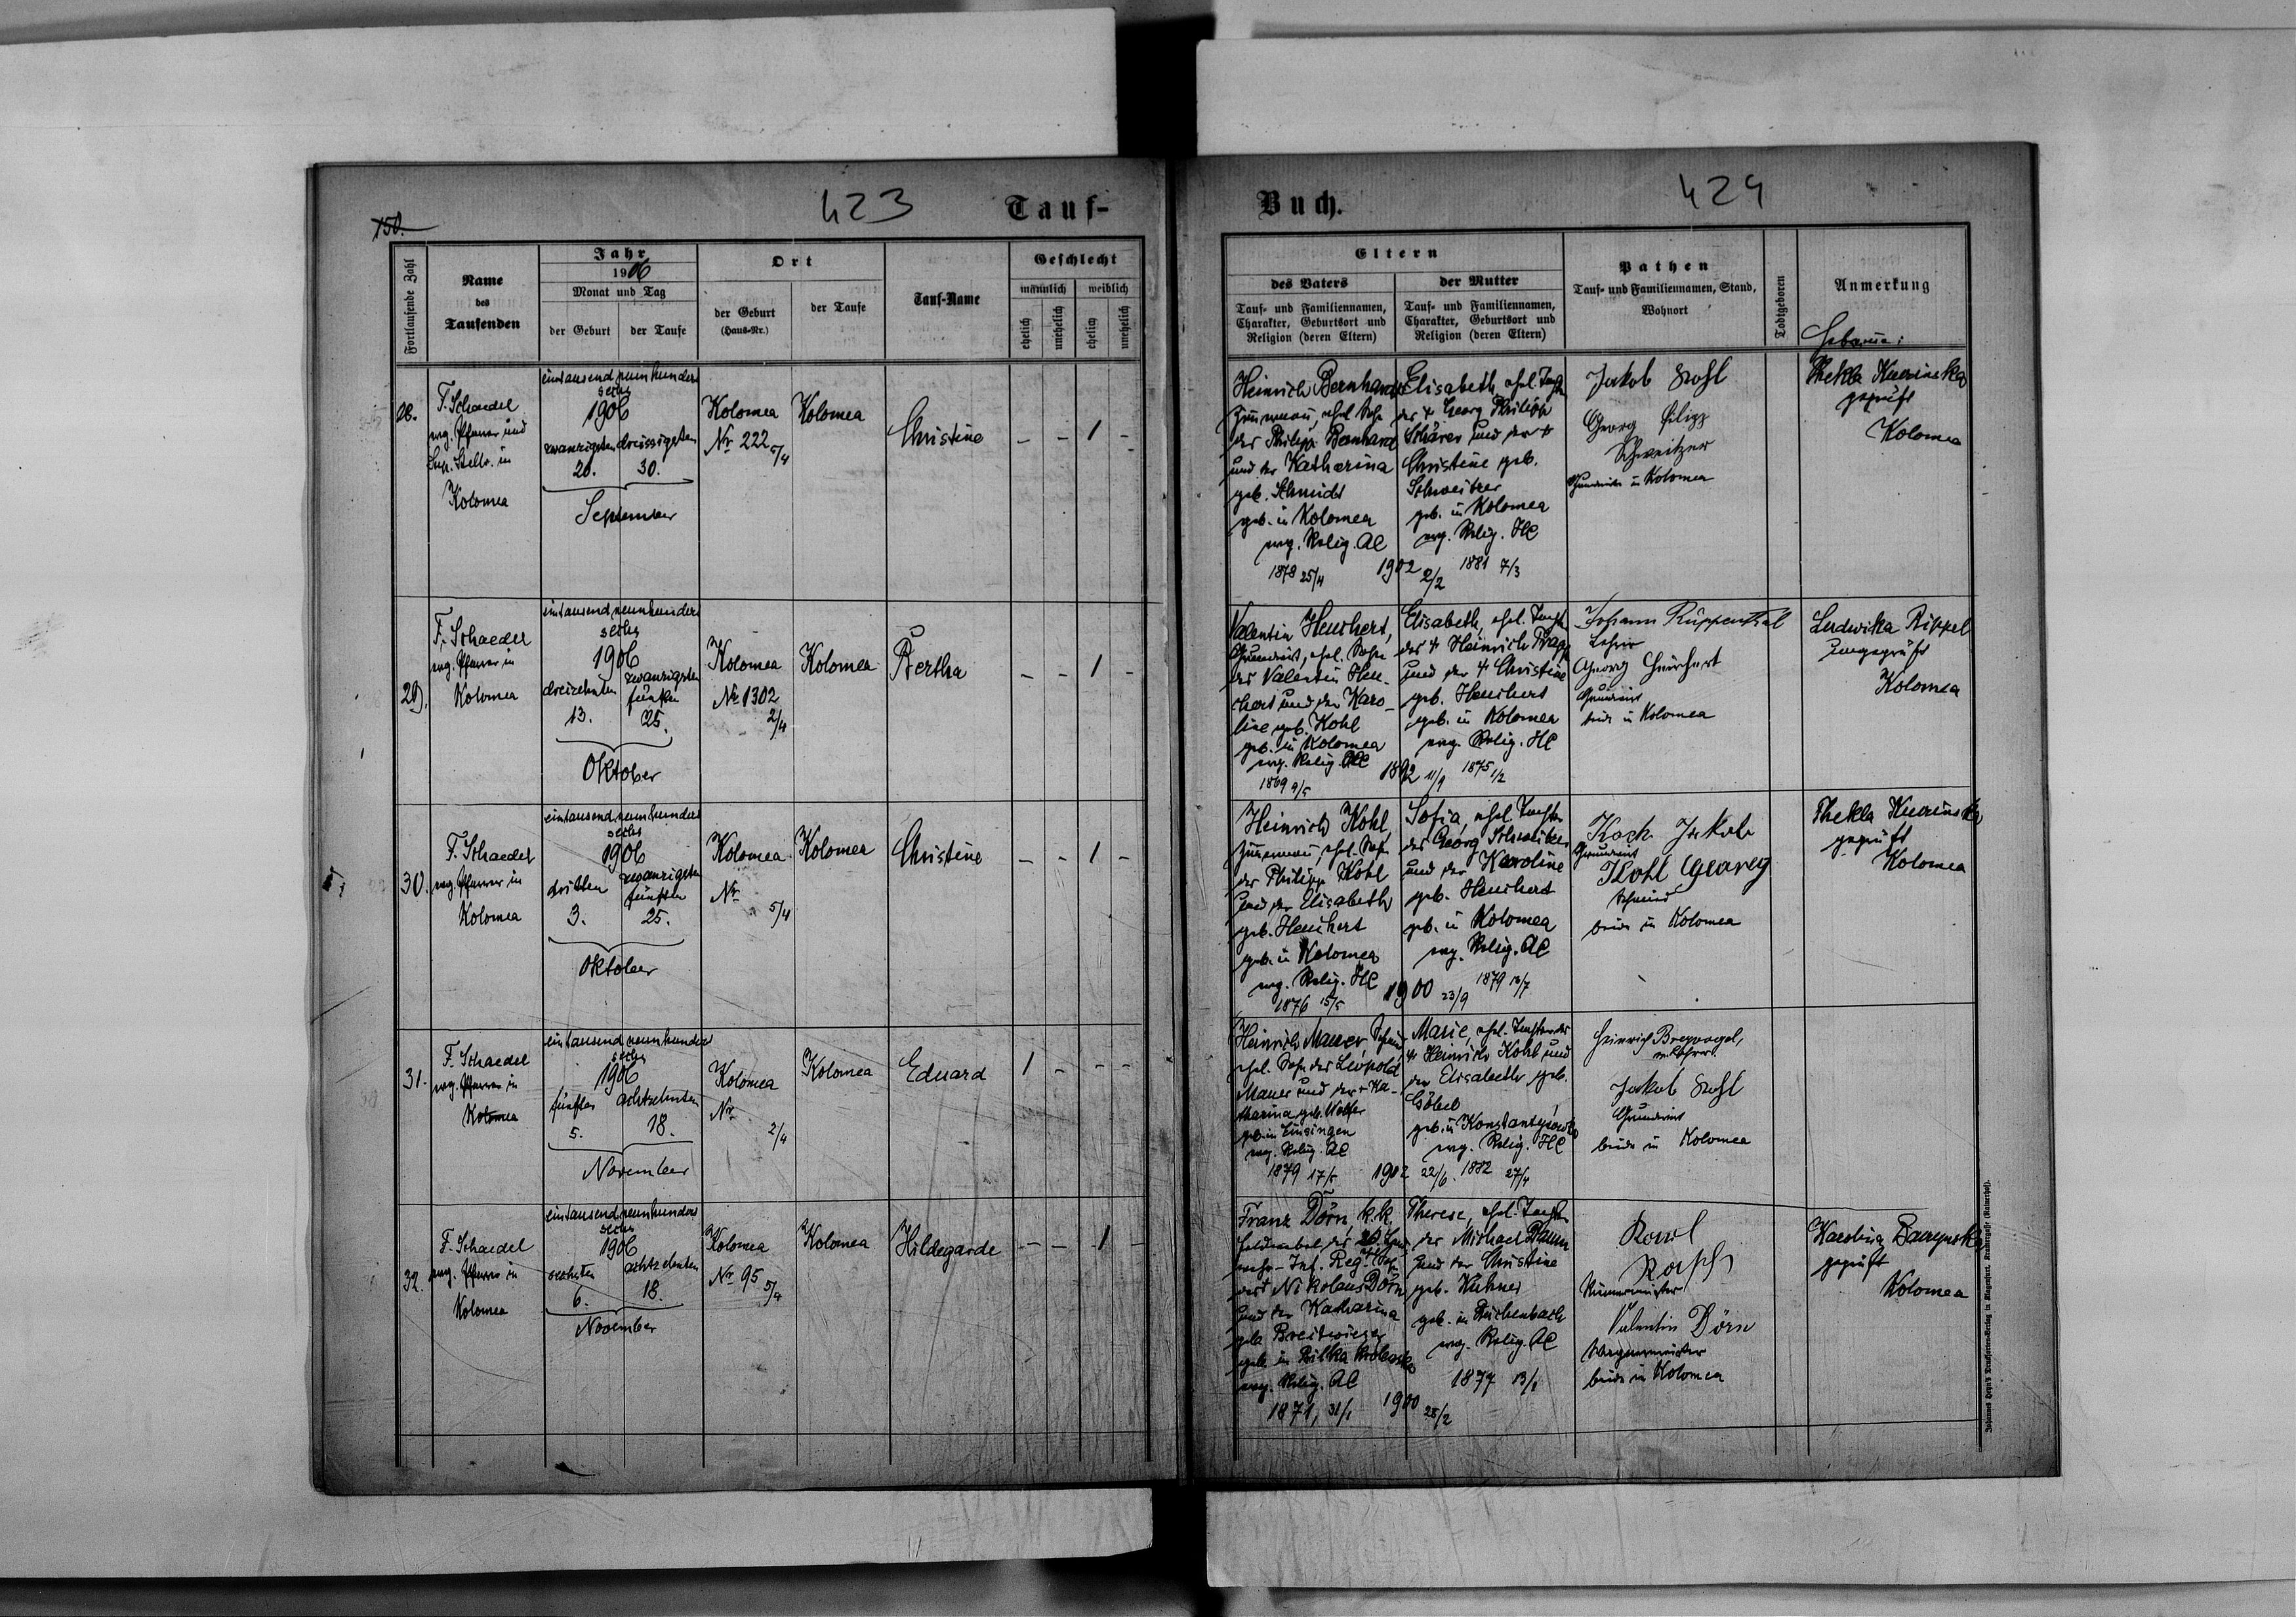 423
Tauf-
150.
Fortlaufende Zahl
Name
des
Taufenden
Jahr
1906
Monat und Tag
der Geburt
der Taufe
Ort
der Geburt
(Haus-Nr.)
der Taufe
Tauf-Name
Geschlecht
männlich
weiblich
ehelich
unehelich
ehelich
unehelich
28.
F. Schaedel
evg. Pfarrer und
Sup. Stellv. in
Kolomea
eintausend neunhundert
sechs
1906
zwanzigsten dreissigsten
20. 30.
September
Kolomea
Nr 222 5/4
Kolomea
Christine
- - 1 -
29).
F. Schaedel
evg. Pfarrer in
Kolomea
eintausend neunhundert
sechs
1906
dreizehnten
zwanzigsten
fünften
13. 25.
Oktober
Kolomea
No 1302
2/4
Kolomea
Bertha
- - 1 -
30.
F. Schaedel
evg. Pfarrer in
Kolomea
eintausend neunhundert
sechs
1906
dritten
zwanzigsten
fünften
3. 25.
Oktober
Kolomea
Nr
5/4
Kolomea
Christine
- - 1 -
31.
F. Schaedel
evg. Pfarrer in
Kolomea
eintausend neunhundert
sechs
1906
fünften achtzehnten
5. 18.
November
Kolomea
Nr
2/4
Kolomea
Eduard
1 - - -
32.
F. Schaedel
evg. Pfarrer in
Kolomea
eintausend neunhundert
sechs
1906
sechsten achtzehnten
6. 18.
November
Kolomea
Nr 95 5/4
Kolomea
Hildegarde
- - 1 -
Buch.
424
Eltern
des Vaters
Tauf- und Familiennamen,
Charakter, Geburtsort und
Religion (deren Eltern)
der Mutter
Tauf- und Familiennamen,
Charakter, Geburtsort und
Religion (deren Eltern)
Pathen
Tauf- und Familiennamen, Stand,
Wohnort
Todtgeboren
Anmerkung
Heinrich Bernhard
Zimmermann, ehel. Sohn
des Philipp Bernhard
und der Katharina
geb. Schmidt
geb. in Kolomea
evg. Relig. AC
1878 25/4
1902 2/2
Elisabeth ehel. Tocht.
des † Georg Philipp
Schärer und der †
Christine geb.
Schweitzer
geb. in Kolomea
evg. Relig. HC
1881 7/3
Jakob Kohl
Georg Filipp
Schweitzer
Grundwirte in Kolomea
Thekla
geprüft
Kolomea
Valentin Heuchert,
Grundwirt, ehel. Sohn
des Valentin Heu-
chert und der Karo-
line geb. Kohl
geb. in Kolomea
evg. Relig. HC
1869 9/5
1892 11/9
Elisabeth, ehel. Tocht.
des † Heinrich
und der † Christine
geb. Heuchert
geb. in Kolomea
evg. Relig. HC
1875 1/2
Johann Ruppenthal
Lehrer
Georg Heuchert
Grundwirt
beide in Kolomea
Ludwika Rippel
ungeprüft
Kolomea
Heinrich Kohl,
Zimmermann, ehel. Sohn
des Philipp Kohl
und der Elisabeth
geb. Heuchert
geb. in Kolomea
evg. Relig. HC
1876 15/5
1900 23/9
Sofia, ehel. Tochter
des Georg Schweitzer
und der Karoline
geb. Heuchert
geb. in Kolomea
evg. Relig. AC
1879 13/7
Koch Jakob
Grundwirt
Kohl Georg
Schmied
beide in Kolomea
Thekla
geprüft
Kolomea
Heinrich Mauer, Schmied
ehel. Sohn des Leopold
Mauer und der † Ka-
tharina geb.
geb. in Einsingen
evg. Relig. AC
1879 17/5
1902 22/6
Marie, ehel. Tochter des
† Heinrich Kohl und
der Elisabeth geb.
Göbel
geb. in Konstantynówka
evg. Relig. HC
1882 27/4
Heinrich Breyvogel,
Jakob Kohl
Grundwirt
beide in Kolomea
Franz Dörn, k.k.
Feldwebel des 20. Land-
wehr-Inf. Reg.
des † Nikolaus Dörn
und der Katharina
geb. Breitwieser
geb. in
evg. Relig. AC
1871, 31/1
1900 28/2
Therese, ehel. Tochter
des Michael
und der Christine
geb. Kühner
geb. in Reichenbach
evg. Relig. AC
1877
Karl
Valentin Dörn
Wagnermeister
beide in Kolomea
Karolina
geprüft
Kolomea